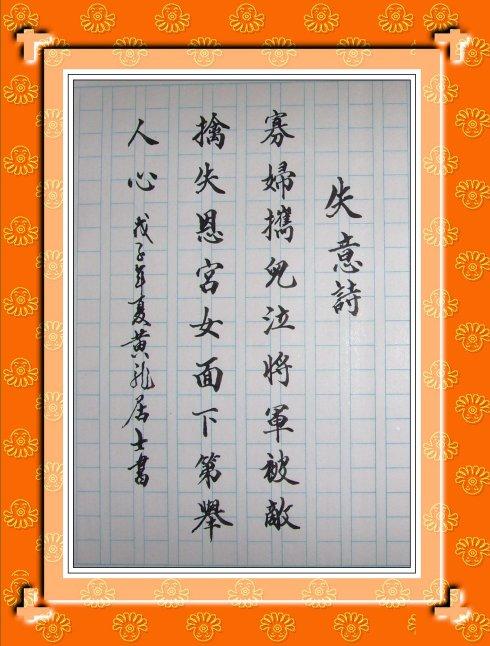 失意詩
寡婦攜兒泣將軍被敵
擒失恩宮女面下第舉
人心戊子年夏黃龍居士書